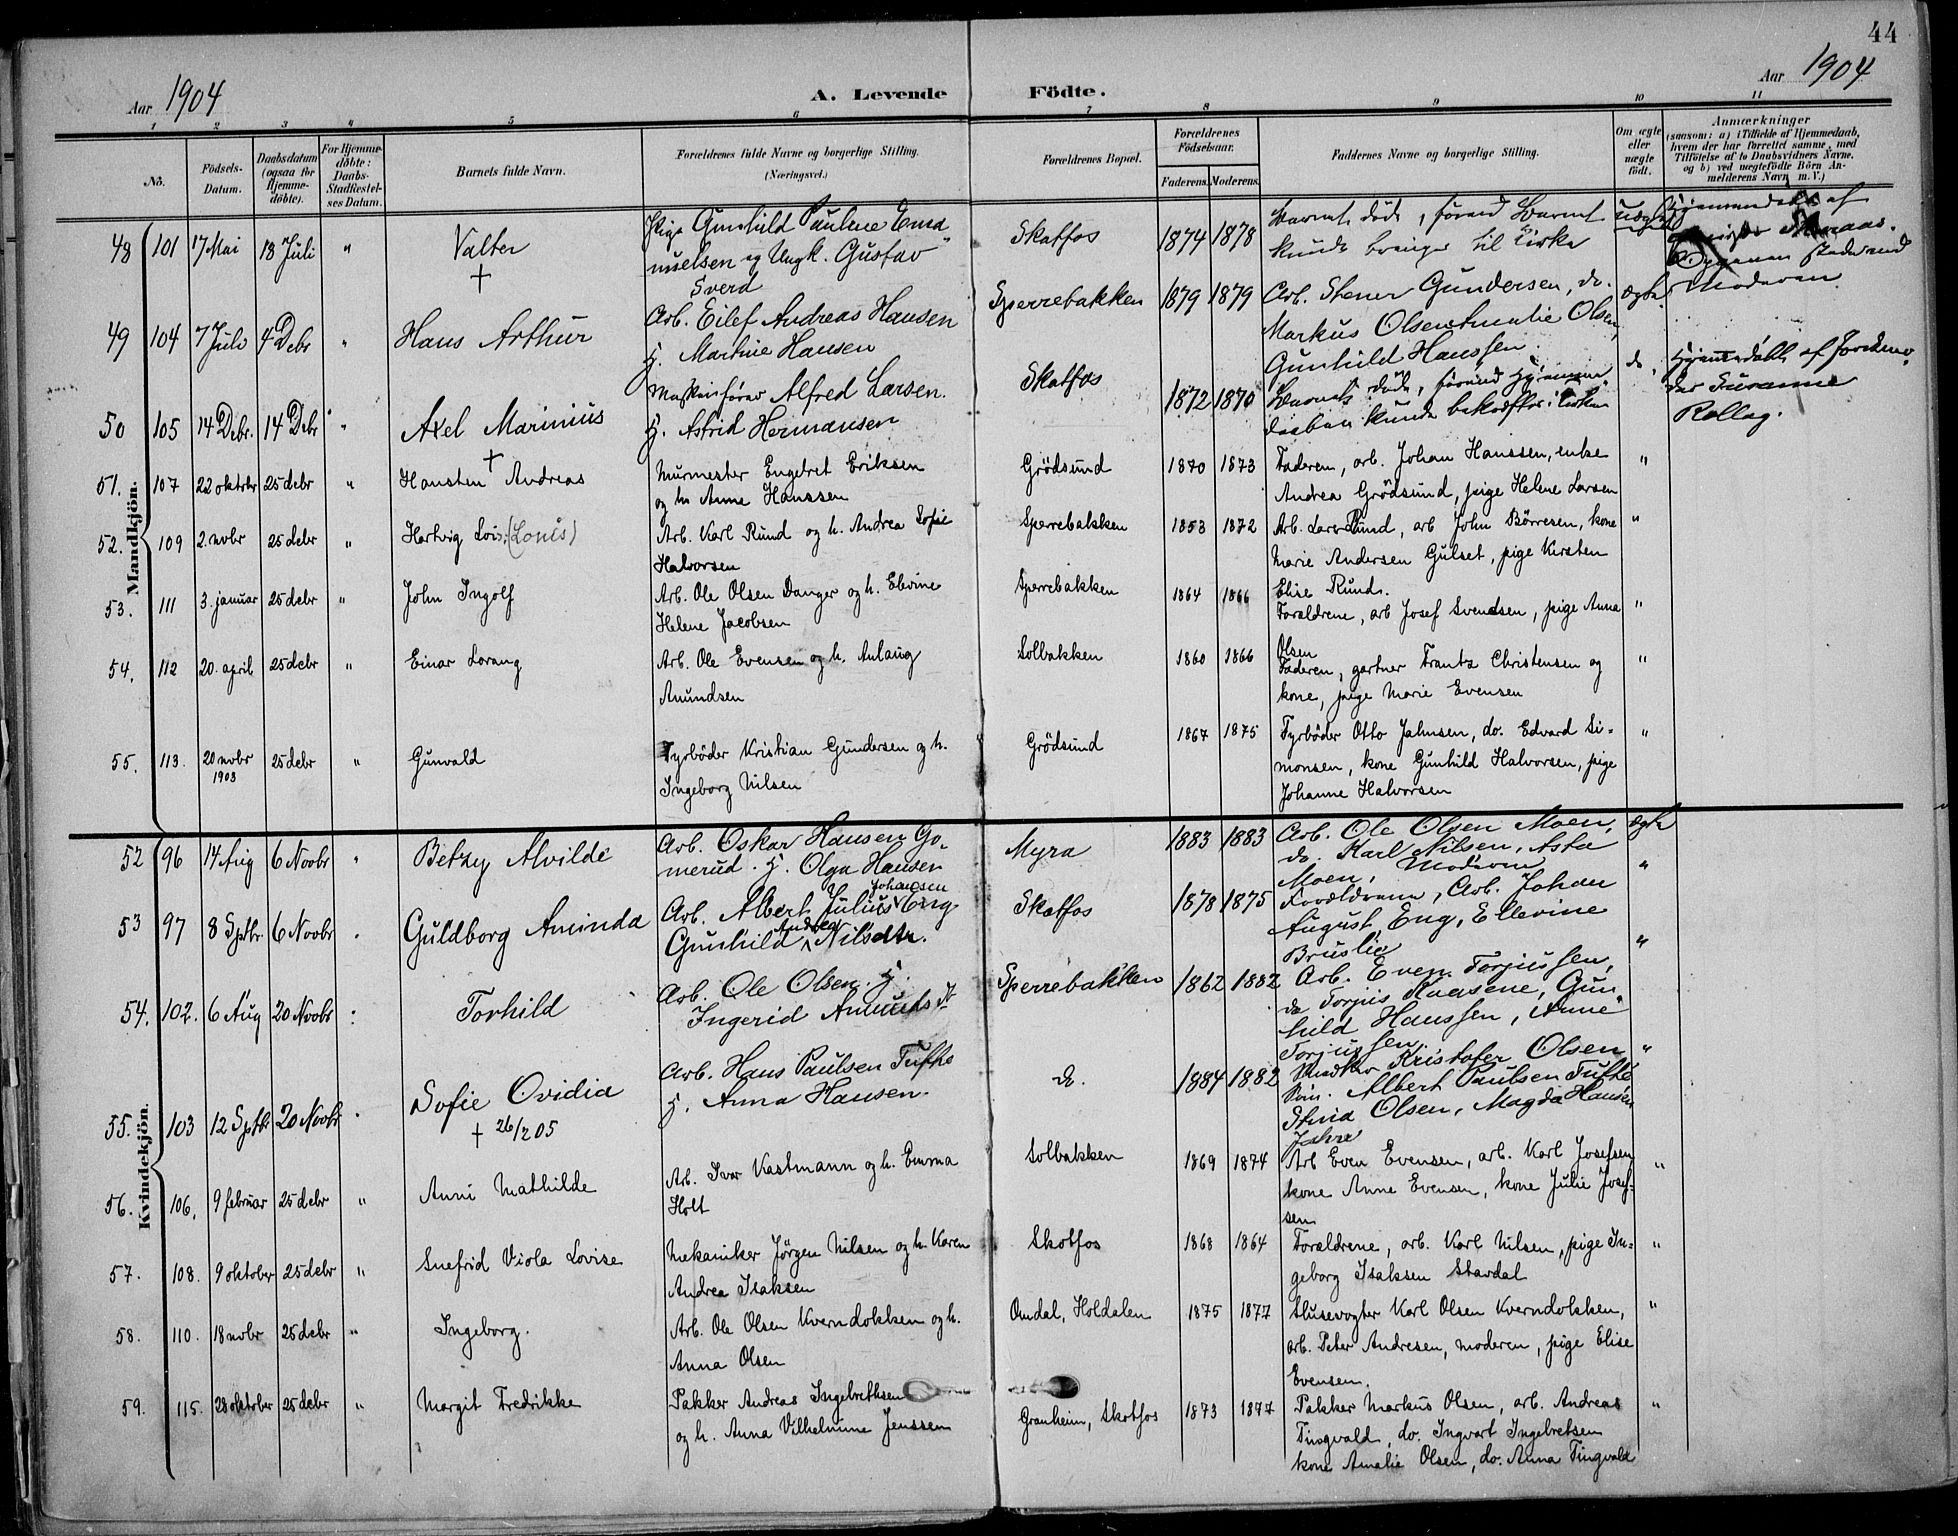 44
Aar 1904
A. Levende Födte.
Aar 1904
1 2 3 4 5 6 7 8 9 10 11
No.
Födsels-Datum.
Daabsdatum (ogsaa for Hjemmedöbte).
For Hjemmedöbte: Daabs-Stadfæstelses Datum.
Barnets fulde Navn.
Forældrenes fulde Navne og borgerlige Stilling. (Næringsvei.)
Forældrenes Bopæl.
Forældrenes Födselsaar.
Faderens. Moderens.
Faddernes Navne og borgerlige Stilling.
Om ægte eller uægte födt.
Anmærkninger
(saasom: a) i Tilfælde af Hjemmedaab, hvem der har forrettet samme, med Tilföielse af to Daabsvidners Navne, og b) ved uægtefödte Börn Anmelderens Navn m. V.)
Mandkjön.
48 101 17 Mai 18 Juli " Valter + Pige Gunhild Pauline Ema
nuelsen og Ungk. Gustav
Sverd
Skotfos 1874 1878 Barnet döde, förend Barnet
kunde bringes til Kirke
uægte Hjemmedöbt af
Moderen.
49 104 7 Juli 4 Debr " Hans Arthur Arb. Eilef Andreas Hansen
H. Martine Hansen
Sperrebakken 1879 1879 Arb. Stener Gundersen, do.
Markus Olsen Amalie Olsen,
Gunhild Hanssen
ægte
50 105 14 Debr. 14 Debr " Axel Marinius + Maskinförer Alfred Larsen.
H. Astrid Hermansen
Skotfos 1872 1870 Barnet döde, förend Hjemme
daaben kunde bekræftes i Kirken
do. Hjemmedöbt af Jordemo-
der Susanne
Rollag.
51. 107 22 oktobr 25 debr " Hansten Andreas Murmester Engelret Eriksen
og h. Anne Hanssen
Grödsund 1870 1873 Faderen, arb. Johan Hanssen, enke
Andrea Grödsund, pige Helene Larsen "
52. 109 2. novbr 25 debr " Hartvig Lois (Louis) Arb. Karl Rund og h. Andrea Sofie
Halvorsen
Sperrebakken 1853 1872 Arb. Lars Rund, arb John Börresen, kone
Marie Andersen Gulset, pige Kirsten
Elise Rund. "
53. 111 3. januar 25 debr " John Ingolf Arb. Ole Olsen Danger og h. Elevine
Helene Jacobsen
Sperrebakken 1864 1866 Foraldrene, arb Josef Svendsen, pige Anna
Olsen "
54. 112 20. april 25 debr " Einar Lorang Arb. Ole Evensen og h. Anlaug
Amundsen
Solbakken 1860 1866 Faderen, gartner Frantz Christensen og
kone, pige Marie Evensen "
55. 113. 20 novbr 1903 25 debr " Gunvald Fyrböder Kristian Gundersen og h.
Ingeborg Nilsen
Grödsund 1867 1875 Fyrböder Otto Jahnsen, do. Edvard Si-
monsen, kone Gunhild Halvorsen, pige
Johanne Halvorsen "
Kvindekjön.
52 96 14 Aug 6 Novbr " Betzy Alvilde Arb. Oskar Hansen Go-
merud. H. Olga Hansen
Myra 1883 1883 Arb. Ole Olsen Moen,
do. Karl Nilsen, Asta
Moen, Moderen
ægte
53 97 8 Sptbr. 6 Novbr . Guldborg Aminda Arb. Albert Julius Johansen Eng
Gunhild Andrea Nilsdtr.
Skotfos 1878 1875 Forældrene, Arb. Johan
August Eng, Ellevine
Bruslie "
54. 102. 6 Aug 20 Novbr : Torhild Arb. Ole Olsen. H
Ingerid Amundsdt
Sperrebakken 1862 1882 Arb. Even Torjussen,
do Torjus Kaasene, Gun
hild Hanssen, Anne
Torjussen. "
55. 103 12 Sptbr 20 Novbr . Sofie Ovidia + 26/2 05 Arb. Hans Paulsen Tufte
H. Anna Hansen.
do. 1884 1882 Kristofer Olsen
Albert Paulsen Tufte
Stina Olsen, Magda Hansen
"
56. 106. 9 februar 25 debr " Anni Mathilde Arb. Ivar Vastmann og h. Emma
Holt
Solbakken 1869 1874 Arb Even Evensen, arb. Karl Josefsen
kone Anne Evensen, kone Julie Josef-
sen "
57. 108. 9 oktober 25 debr " Snefrid Viola Lovise Mekaniker Jörgen Nilsen og h. Karen
Andrea Isaksen
Skotfos 1868 1864 Foraldrene, arb. Karl Nilsen, pige In-
geborg Isaksen Stavdal "
58. 110. 18 novbr 25 debr " Ingeborg. Arb. Ole Olsen Kverndokken og h.
Anna Olsen
Omdal, Holdalen 1875 1877 Slusevogter Karl Olsen Kverndokken,
arb. Peter Andresen, moderen, pige Elise
Evensen. "
59. 115. 28 oktober 25 debr " Margit Fredrikke Pakker Andreas Ingebrethsen
og h. Anna Vilhelmine Jenssen
Granheim, Skotfos 1873 1877 Pakker Markus Olsen, arb. Andreas
Tingvald, do. Ingvart Ingebretsen
kone Amalie Olsen, do. Anna Tingvald "